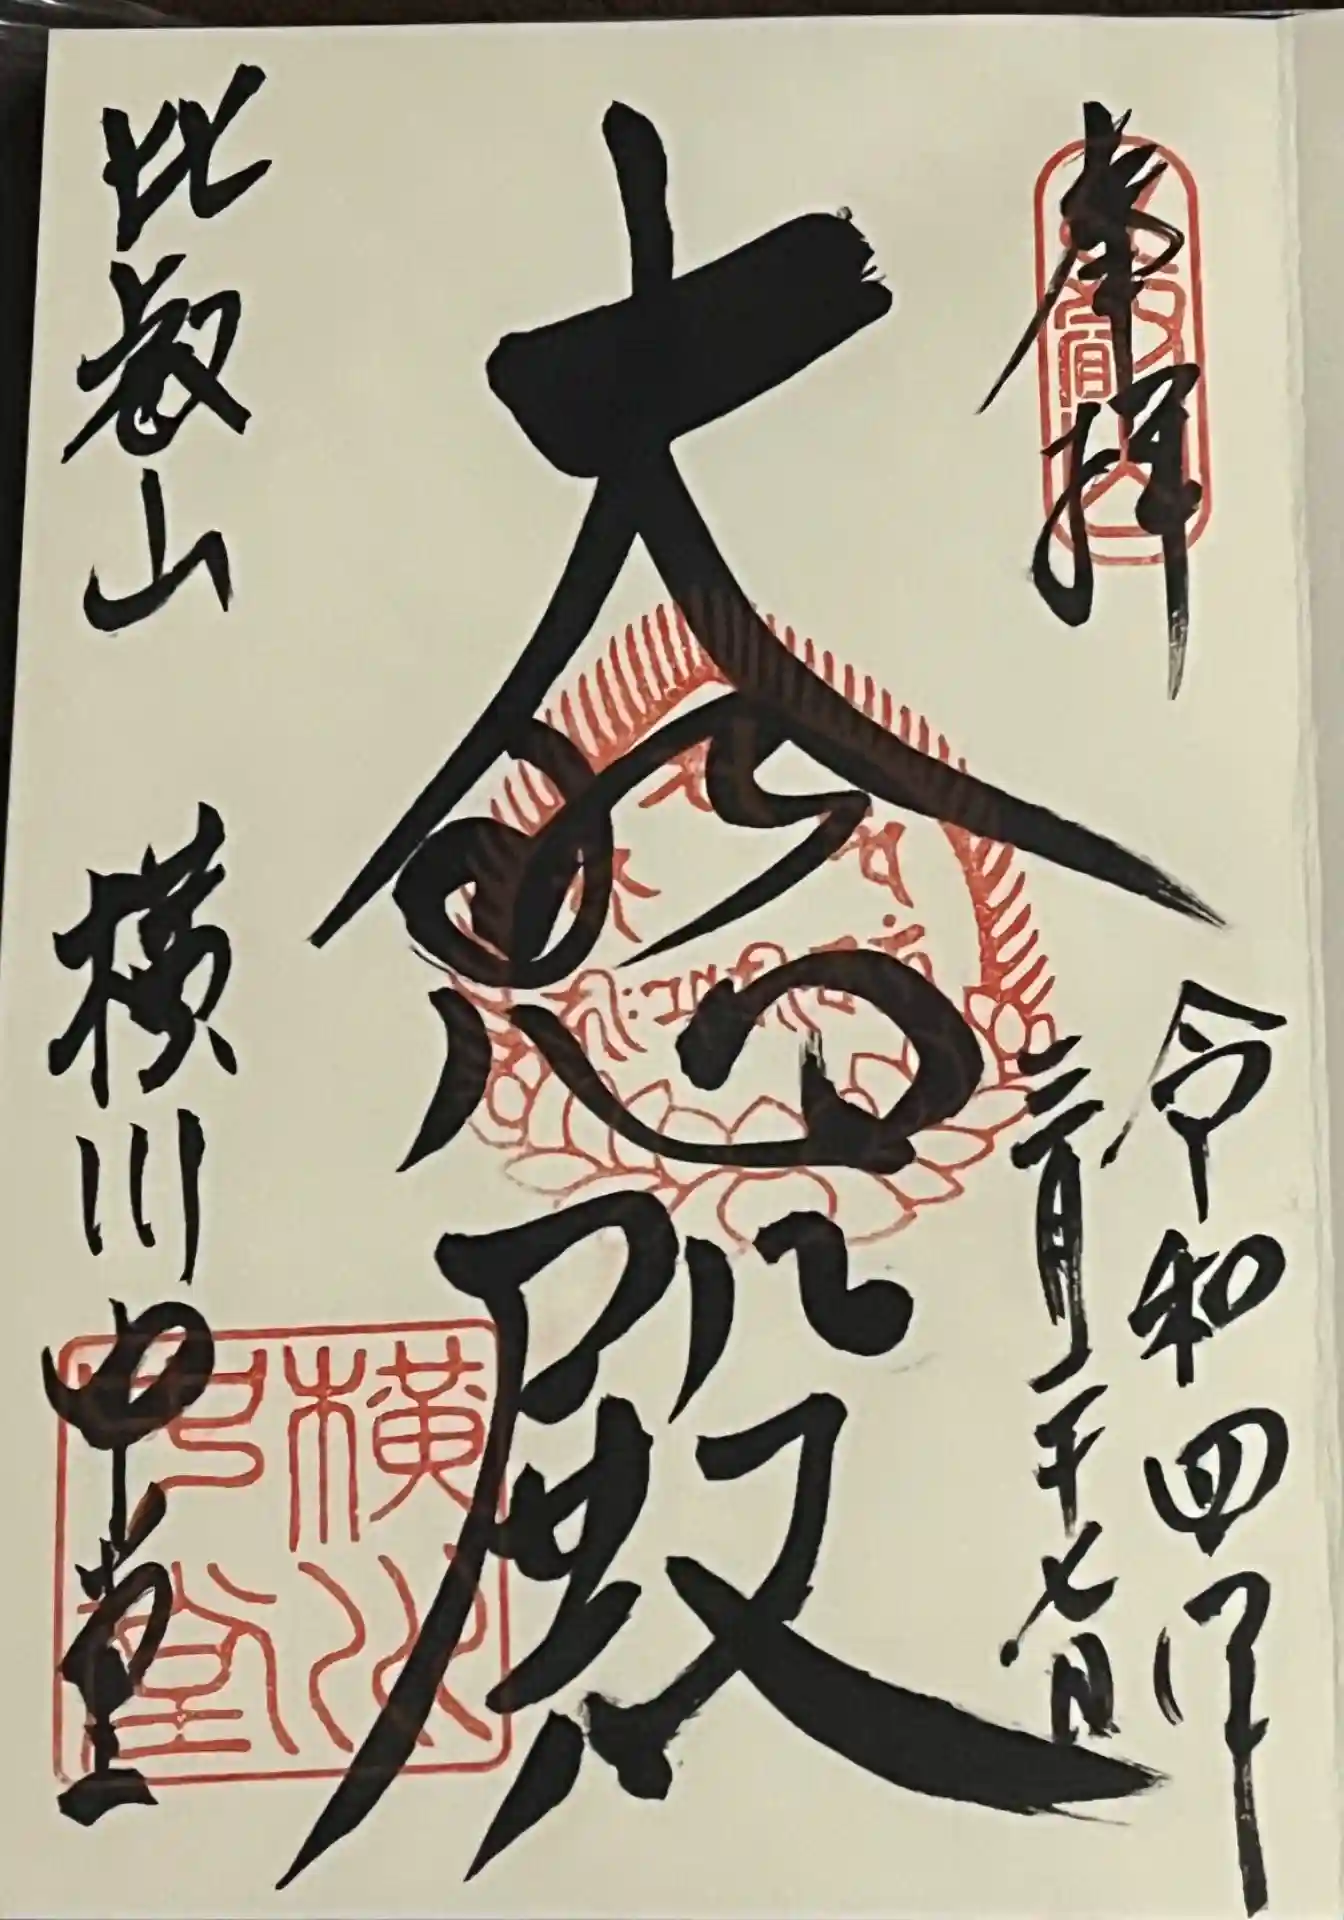 奉拝
令和四年
三月二十七日
大悲殿
比叡山 横川中堂
横川
中堂